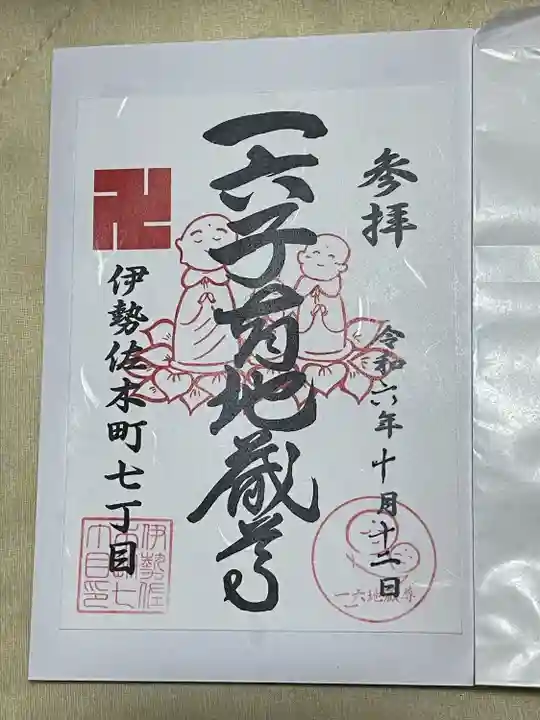 参拝
令和六年十月十二日
一六子育地蔵尊
卍
伊勢佐木町七丁目
一六地蔵尊